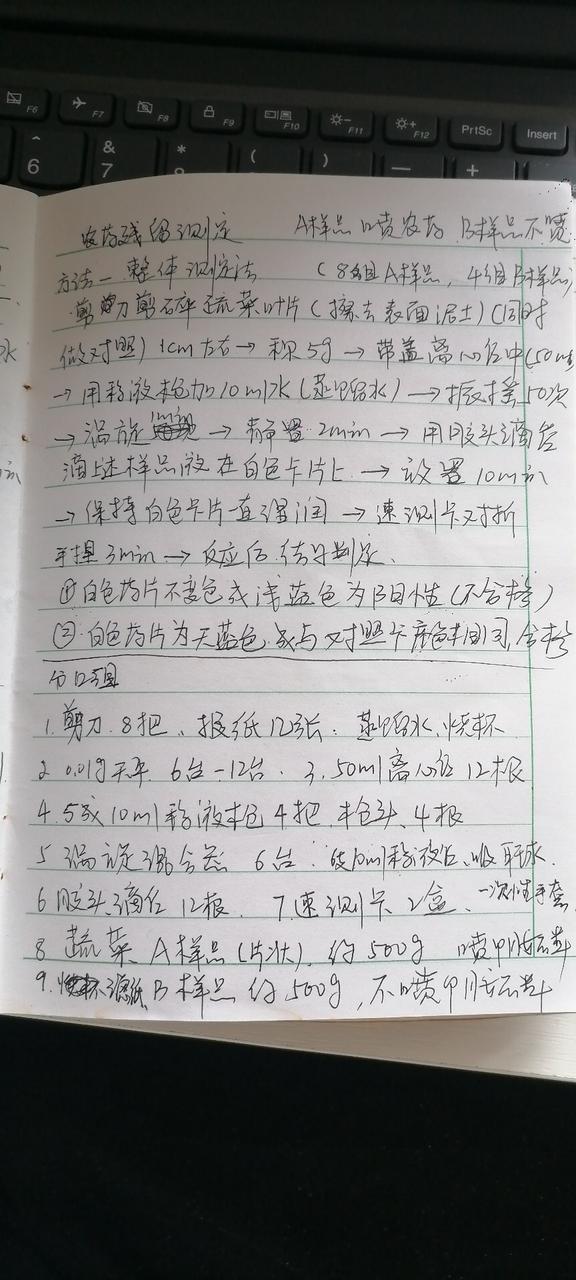 F6 F7 F8 F9 F10 F11 F12 PrtSc Insert
^ & * ( ) — +
6 7
农药残留测定 A样品喷农药 B样品不喷
方法一 整体测定法 (8组A样品, 4组B样品)
剪刀剪碎蔬菜叶片(擦去表面泥土)(同时
做对照) 1cm左右→称5g→带盖离心管中(50ml
→用移液枪加10ml水(蒸馏水)→振摇50次
→涡旋1min→静置2min→用胶头滴管
滴上述样品液在白色卡片上→设置10min
→保持白色卡片一直湿润→速测卡对折
手捏3min→反应后结果判定.
①白色药片不变色或浅蓝色为阴性(不含
②白色药片为天蓝色或与对照卡颜色相同,含
分12组
1.剪刀8把、报纸12张、蒸馏水、烧杯
2 0.01g天平 6台-12台. 3.50ml离心管12根
4.5或10ml移液枪4把、枪头、4根
5涡旋混合器 6台. 10ml移液管、吸耳球.
6胶头滴管12根. 7.速测卡2盒、一次性手套
8 蔬菜A样品(片状). 约500g 喷甲胺磷
9. 滤纸 B样品约500g, 不喷甲胺磷